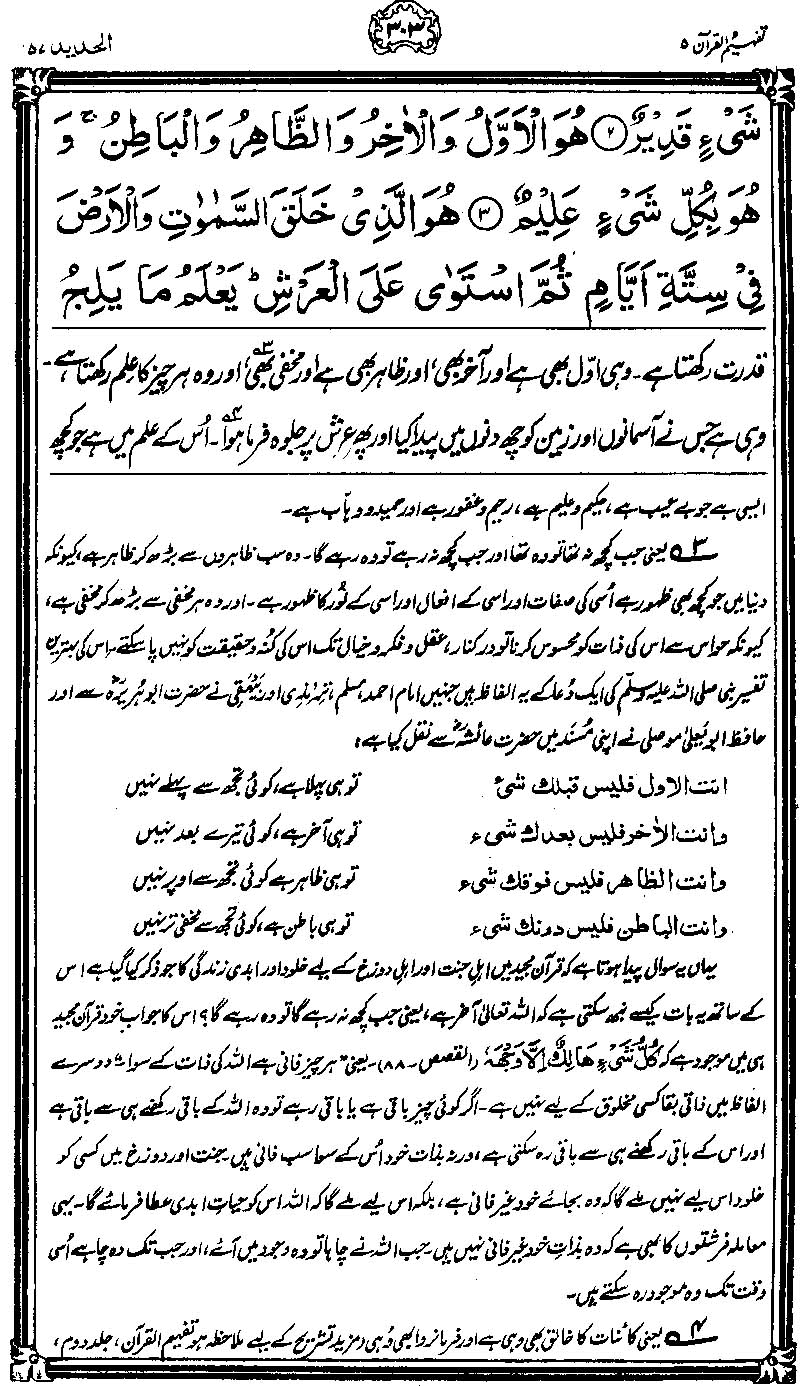 تفہیم القرآن ۵
۳۰۳
الحدید ۵۷
شَیۡءٍ قَدِیۡرٌ ﴿۲﴾ هُوَ الۡاَوَّلُ وَالۡاٰخِرُ وَالظَّاهِرُ وَالۡبَاطِنُ ۚ وَ
هُوَ بِکُلِّ شَیۡءٍ عَلِیۡمٌ ﴿۳﴾ هُوَ الَّذِیۡ خَلَقَ السَّمٰوٰتِ وَالۡاَرۡضَ
فِیۡ سِتَّةِ اَیَّامٍ ثُمَّ اسۡتَوٰی عَلَی الۡعَرۡشِ ؕ یَعۡلَمُ مَا یَلِجُ
قدرت رکھتا ہے۔ وہی اوّل بھی ہے اور آخر بھی، اور ظاہر بھی ہے اور مخفی بھی،۳ اور وہ ہر چیز کا علم رکھتا ہے۔
وہی ہے جس نے آسمانوں اور زمین کو چھ دنوں میں پیدا کیا اور پھر عرش پر جلوہ فرما ہوا۴۔ اُس کے علم میں ہے جو کچھ
ایسی ہے جو بے عیب ہے، حکیم و علیم ہے، رحیم و غفور ہے اور حمید و وہّاب ہے۔
۳ یعنی جب کچھ نہ تھا تو وہ تھا اور جب کچھ نہ رہے تو وہ رہے گا۔ وہ سب ظاہروں سے بڑھ کر ظاہر ہے، کیونکہ
دنیا میں جو کچھ بھی ظہور ہے اُسی کی صفات اور اسی کے افعال اور اسی کے نُور کا ظہور ہے۔ اور وہ ہر مخفی سے بڑھ کر مخفی ہے،
کیونکہ حواس سے اس کی ذات کو محسوس کرنا تو درکنار، عقل و فکر و خیال تک اس کی کُنہ و حقیقت کو نہیں پا سکتے۔ اس کی بہترین
تفسیر نبی صلی اللہ علیہ وسلّم کی ایک دُعا کے یہ الفاظ ہیں جنہیں امام احمد، مسلم، ترمذی اور بَیہقی نے حضرت ابوہُریرہؓ سے اور
حافظ ابویَعلیٰ موصلی نے اپنی مُسنَد میں حضرت عائشہؓ سے نقل کیا ہے:
انت الاول فلیس قبلك شیء تو ہی پہلا ہے، کوئی تجھ سے پہلے نہیں
وانت الاٰخر فلیس بعدك شیء تو ہی آخر ہے، کوئی تیرے بعد نہیں
وانت الظاهر فلیس فوقك شیء تو ہی ظاہر ہے کوئی تجھ سے اوپر نہیں
وانت الباطن فلیس دونك شیء تو ہی باطن ہے، کوئی تجھ سے مخفی تر نہیں
یہاں یہ سوال پیدا ہوتا ہے کہ قرآن مجید میں اہلِ جنت اور اہلِ دوزخ کے لیے خلود اور ابدی زندگی کا جو ذکر کیا گیا ہے اس
کے ساتھ یہ بات کیسے نبھ سکتی ہے کہ اللہ تعالیٰ آخر ہے، یعنی جب کچھ نہ رہے گا تو وہ رہے گا؟ اس کا جواب خود قرآن مجید
ہی میں موجود ہے کہ کُلُّ شَیۡءٍ هَالِكٌ اِلَّا وَجۡهَهٗ (القصص۔ ۸۸)۔ یعنی "ہر چیز فانی ہے اللہ کی ذات کے سوا" دوسرے
الفاظ میں ذاتی بقا کسی مخلوق کے لیے نہیں ہے۔ اگر کوئی چیز باقی ہے یا باقی رہے تو وہ اللہ کے باقی رکھنے ہی سے باقی ہے
اور اس کے باقی رکھنے ہی سے باقی رہ سکتی ہے، ورنہ بذات خود اُس کے سوا سب فانی ہیں۔ جنت اور دوزخ میں کسی کو
خلود اس لیے نہیں ملے گا کہ وہ بجائے خود غیر فانی ہے، بلکہ اس لیے ملے گا کہ اللہ اس کو حیاتِ ابدی عطا فرمائے گا۔ یہی
معاملہ فرشتوں کا بھی ہے کہ وہ بذاتِ خود غیر فانی نہیں ہیں۔ جب اللہ نے چاہا تو وہ وجود میں آئے، اور جب تک وہ چاہے اُسی
وقت تک وہ موجود رہ سکتے ہیں۔
۴ یعنی کائنات کا خالق بھی وہی ہے اور فرمانروا بھی وُہی (مزید تشریح کے لیے ملاحظہ ہو تفہیم القرآن، جلد دوم،